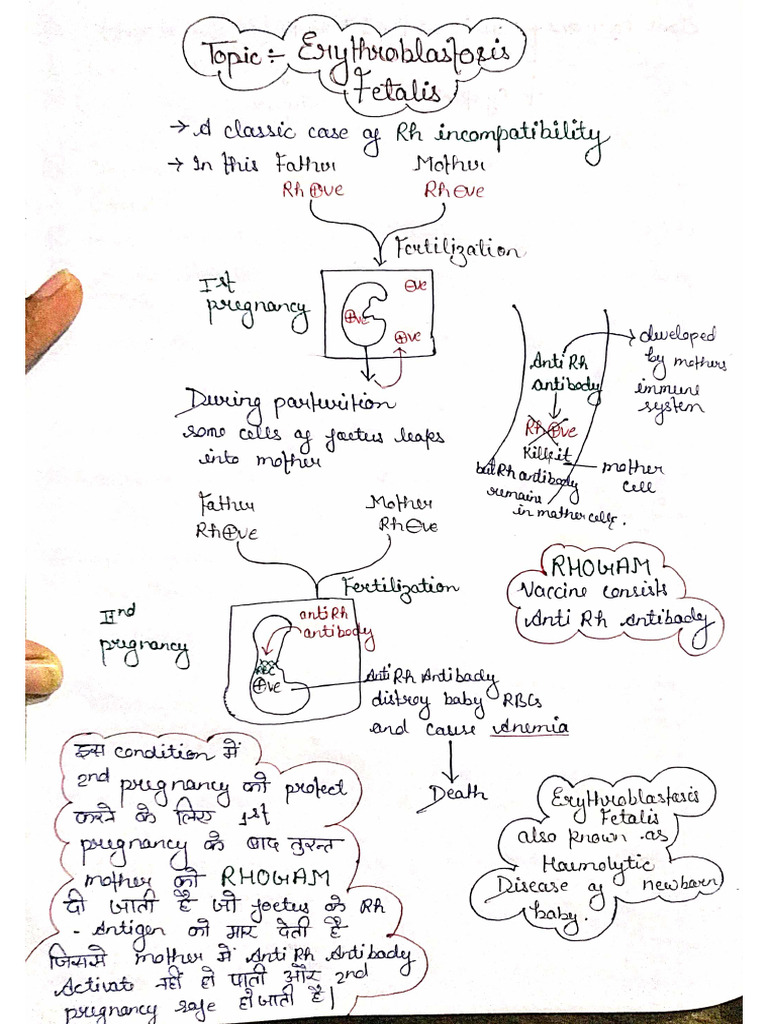 Topic :- Erythroblastosis
Fetalis
→ A classic case of Rh incompatibility
→ In this Father Mother
Rh⊕ve Rh⊖ve
Fertilization
Ist
pregnancy
⊖ve
⊕ve
⊕ve
During parturition
some cells of foetus leaps
into mother
Anti Rh
antibody
developed
by mothers
immune
system
Rh⊕ve
Kills it
mother
cell
but Rh antibody
remains
in mother cells.
Father Mother
Rh⊕ve Rh⊖ve
Fertilization
IInd
pregnancy
anti Rh
antibody
RBC
⊕ve
Anti Rh Antibody
distroy baby RBCs
and cause Anemia
Death
RHOGAM
Vaccine consists
Anti Rh Antibody
इस condition में
2nd pregnancy को protect
करने के लिए 1st
pregnancy के बाद तुरन्त
mother को RHOGAM
दी जाती है जो foetus के Rh
- Antigen को मार देती है
जिससे mother में Anti Rh Antibody
Activate नहीं हो पाती और 2nd
pregnancy safe हो जाती है।
Erythroblastosis
Fetalis
also known as
Haemolytic
Disease of newborn
baby.